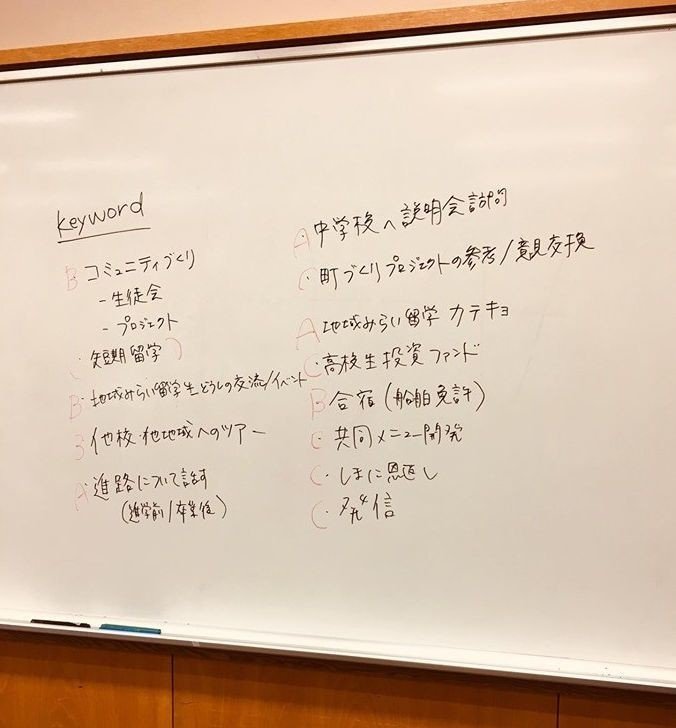 keyword
B コミュニティづくり
- 生徒会
- プロジェクト
(・短期留学)
B・地域みらい留学生どうしの交流/イベント
B 他校・他地域へのツアー
A 進路について話す
(進学前/卒業後)
A・中学校へ説明会訪問
C・町づくりプロジェクトの参考/意見交換
A 地域みらい留学カテキョ
C・高校生投資ファンド
B 合宿(船舶免許)
C・共同メニュー開発
C・しまに恩返し
C・発信